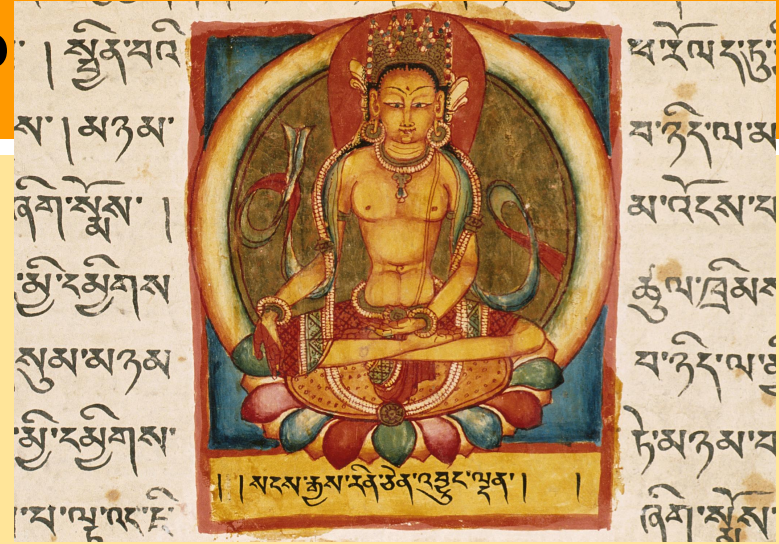 ། སྦྱིན་པའི
ས་ །མ་ཉམ་
ཤིག་སྙོམས་ །
མྱི་དམྱིགས
སུམ་མཉམ
མྱི་དམྱིགས་
། །སངས་རྒྱས་རིན་ཅེན་འབྱུང་ལྡན་། །
ཕ་རོལ་དུ
པ་ཉིད་ལ་མ
མ་འོངས་པ
ཚུལ་ཁྲིམས
པ་ཉིད་ལ་
ཏེ་མཉམ་པ
ཤིག་སྙོམས